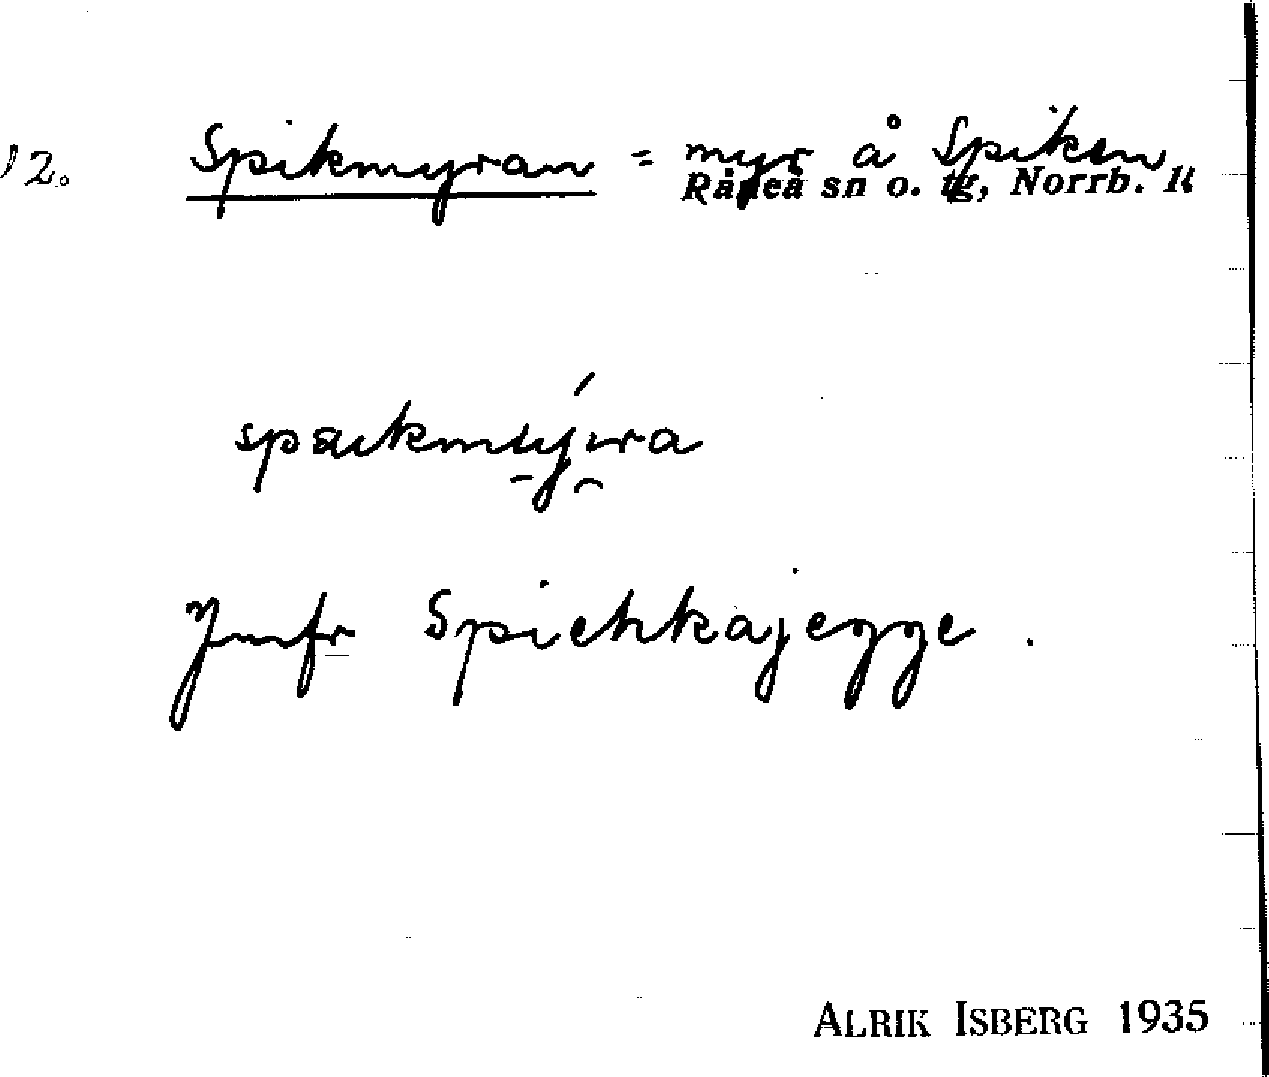 12. Spikmyran = myr å Spiken
Råneå sn o. tg, Norrb. l
spaikmuyra
Jmfr Spiehkajegge.
ALRIK ISBERG 1935